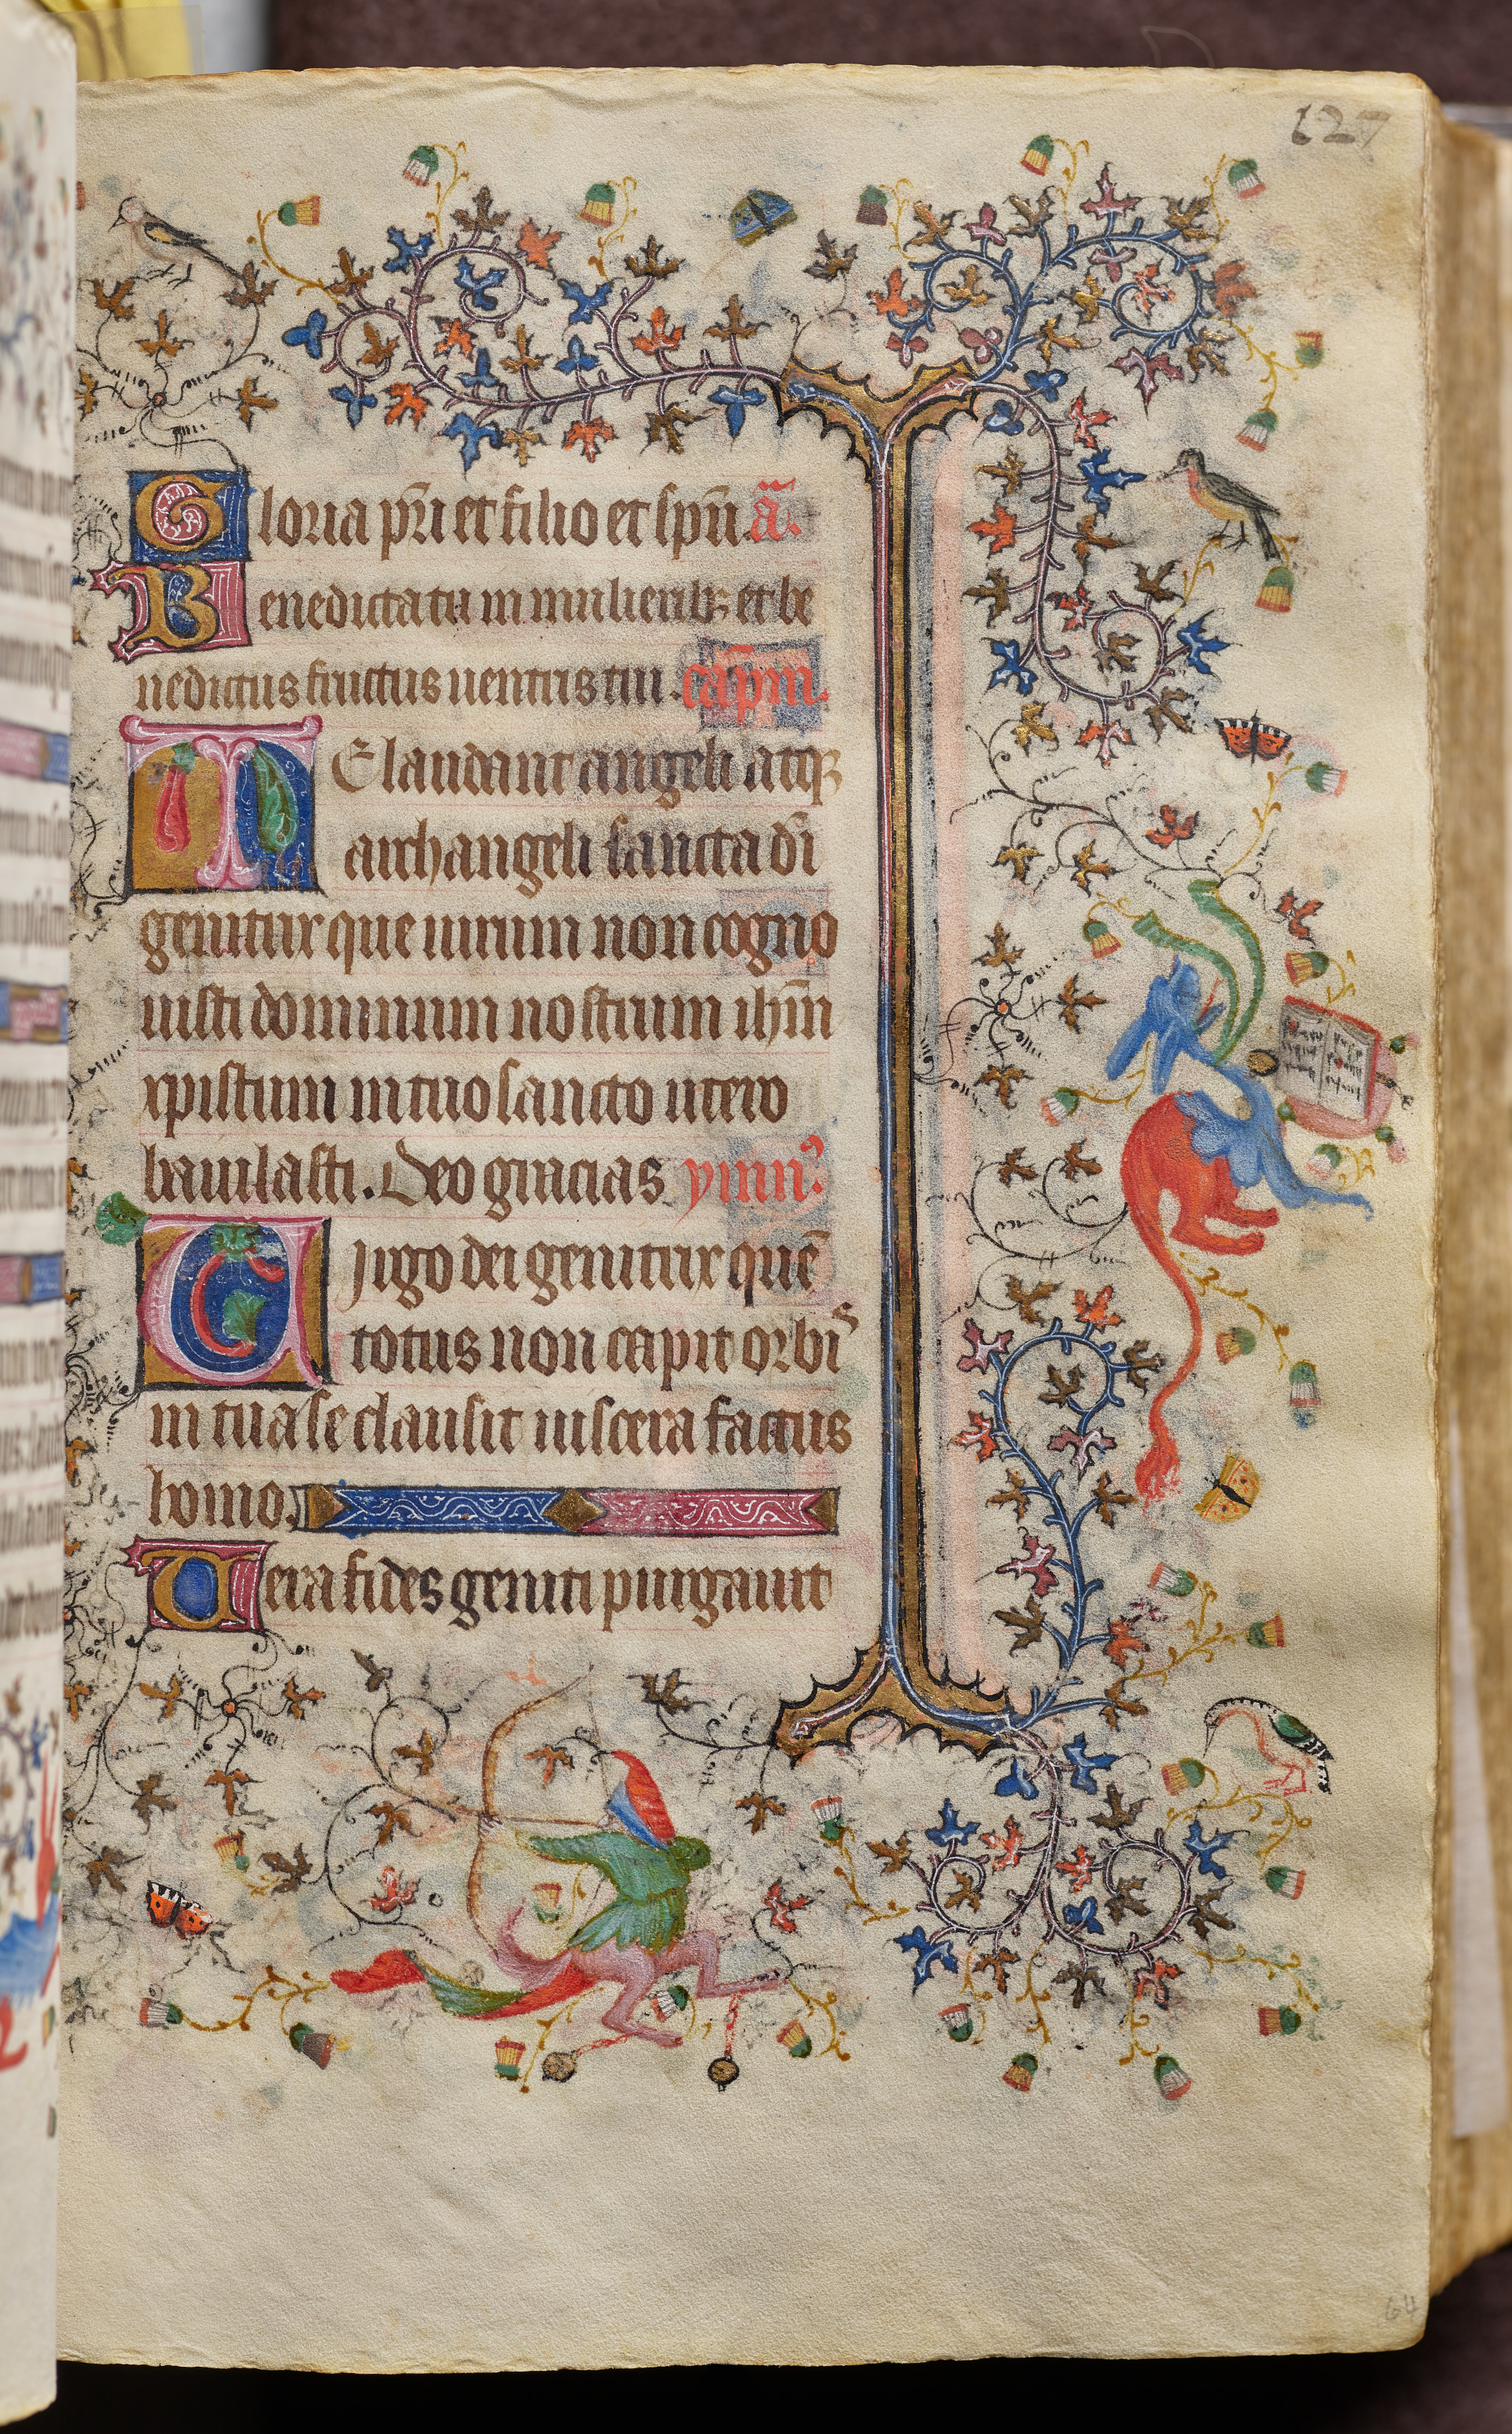 127
Gloria pr̄i et filio et spū. ā.
Benedicta tu in mulieribꝫ et be
nedictus fructus uentris tui. cap̄m.
TE laudant angeli atqꝫ
archangeli sancta dī
genitrix que uirum non cogno
uisti dominum nostrum ih̄m
xpistum in tuo sancto utero
baiulasti. Deo gracias ymn̄?
Uirgo dei genitrix quē
totus non capit orbis
in tua se clausit uiscera factus
homo.
Uera fides geniti purgauit
64